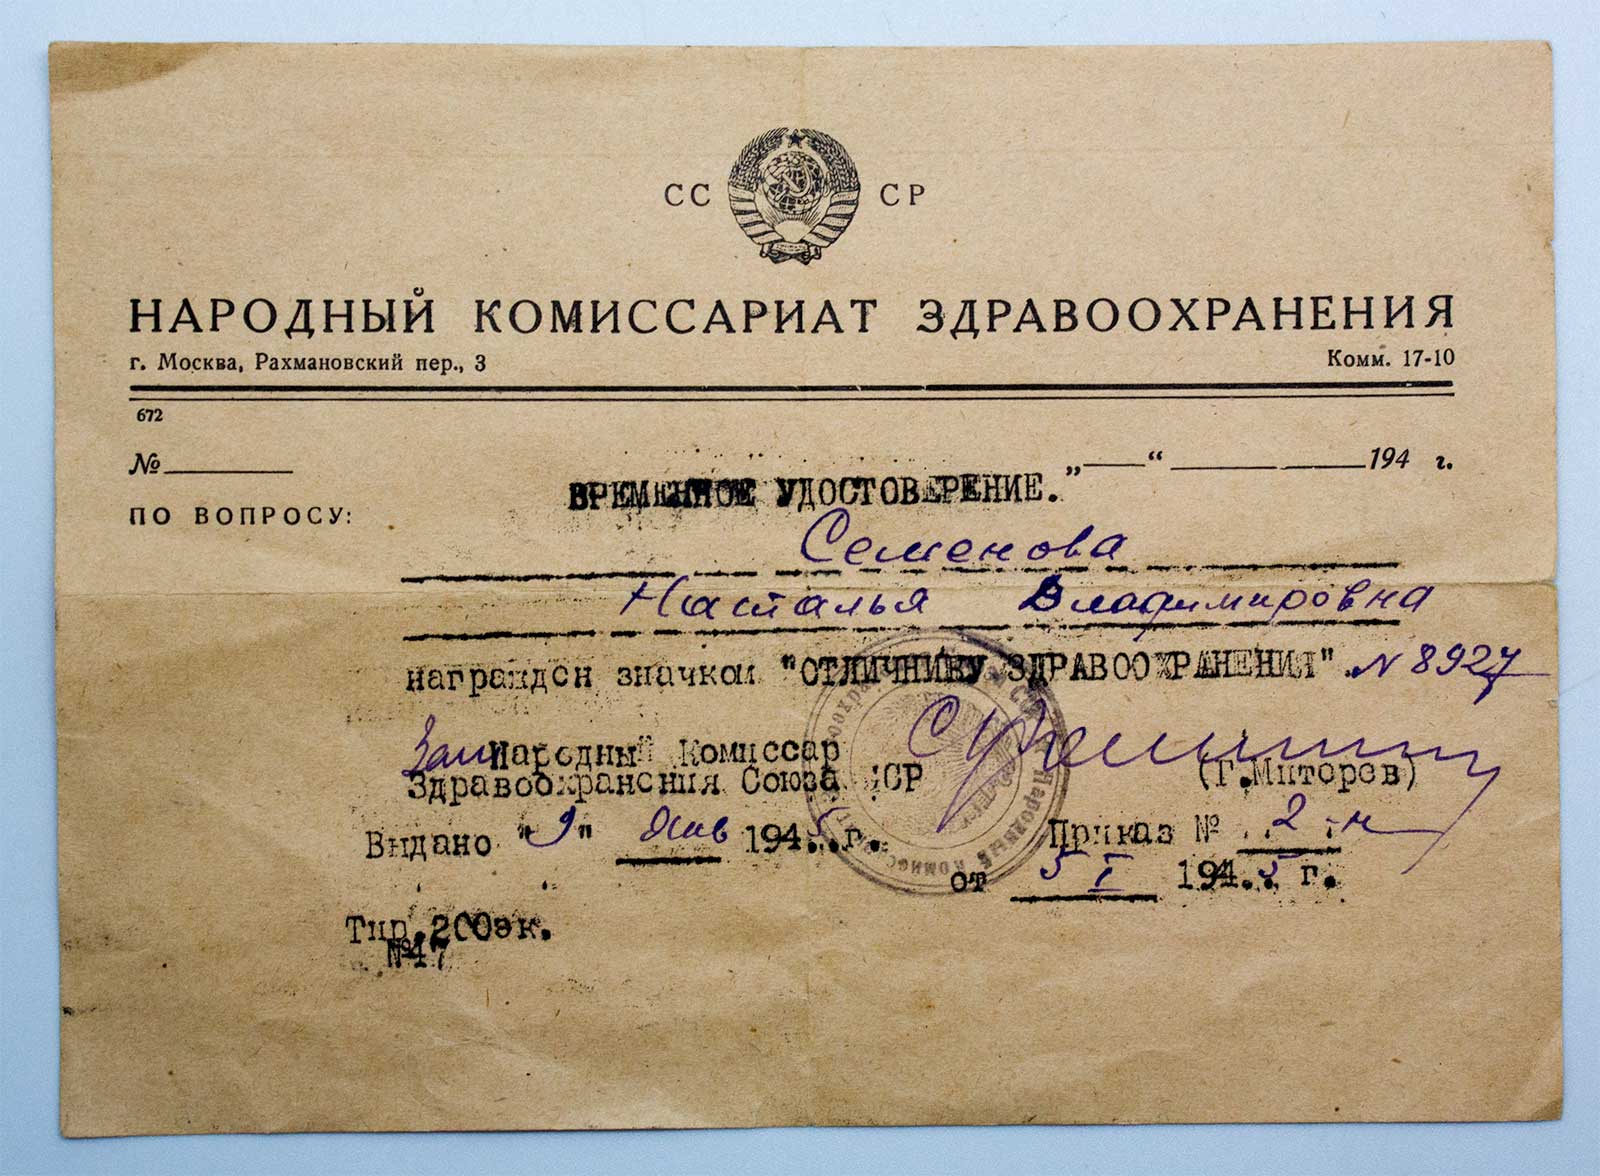 СС СР
НАРОДНЫЙ КОМИССАРИАТ ЗДРАВООХРАНЕНИЯ
г. Москва, Рахмановский пер., 3 Комм. 17-10
672
№ "___" ______ 194 г.
ВРЕМЕННОЕ УДОСТОВЕРЕНИЕ.
ПО ВОПРОСУ:
Семенова
Наталья Владимировна
награжден значком "ОТЛИЧНИКУ ЗДРАВООХРАНЕНИЯ" N 8927
Зам Народный Комиссар
Здравоохранения Союза ССР (Г.Митерев)
Выдано "9" Янв 1945 г. Приказ № 2-н
от 5 I 1945 г.
Тир.200эк.
№47